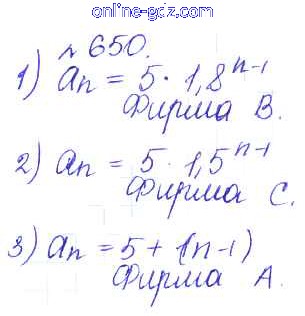 online-gdz.com
№650.
1) an = 5 · 1,8^n-1
Фирма B.
2) an = 5 · 1,5^n-1
Фирма C.
3) an = 5 + (n-1)
Фирма A.